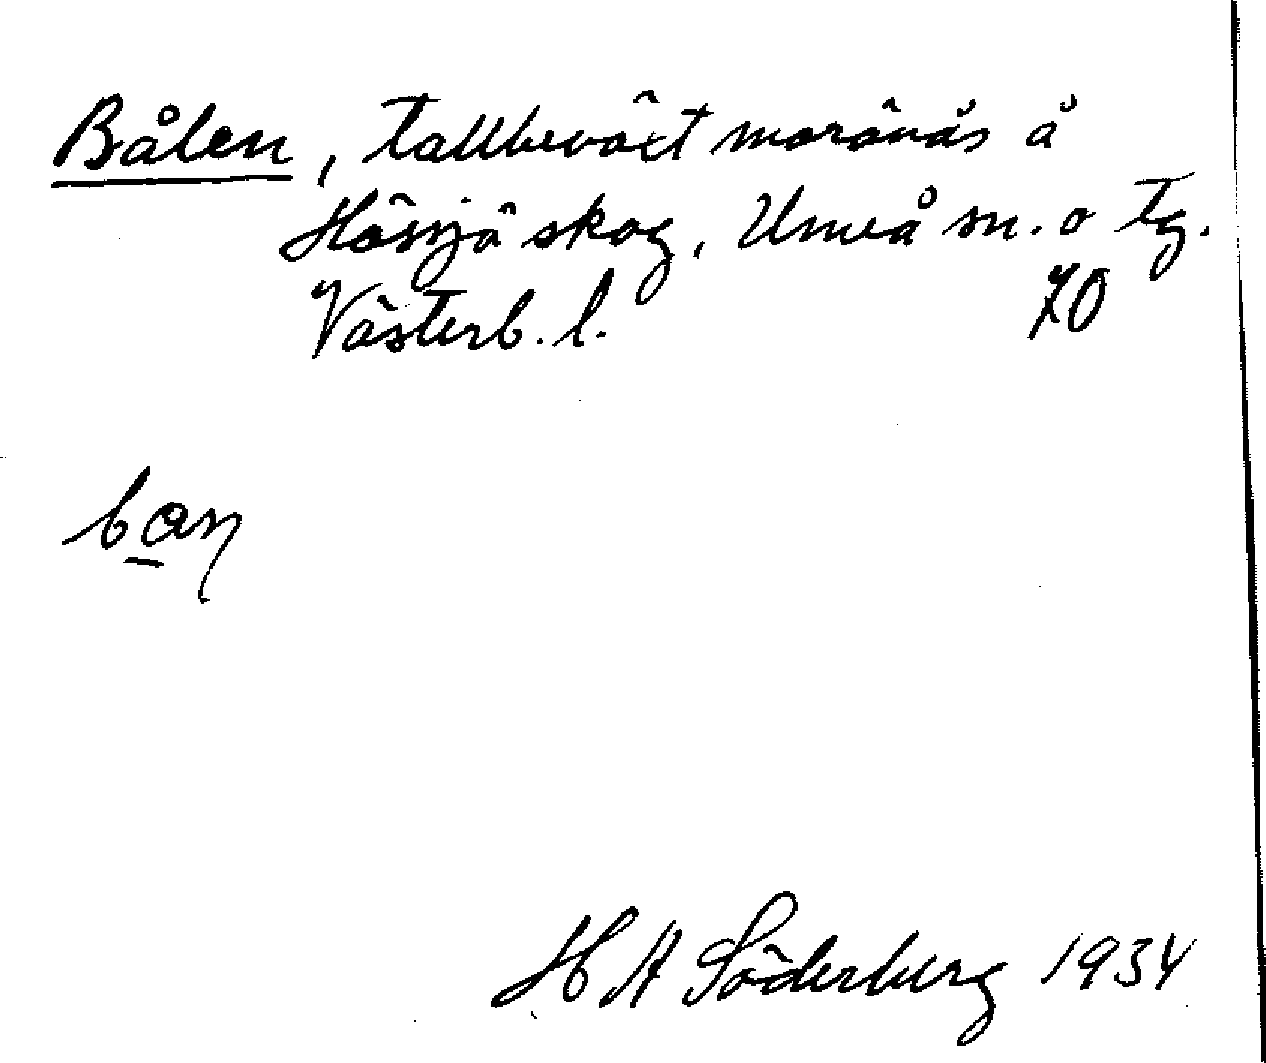 Bålen, tallbeväxt moränås å
Hössjö skog, Umeå sn. o tg.
Västerb. l. 70
H A Söderberg 1934